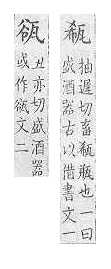 瓻
抽遲切畜瓻瓶也一曰
盛酒器古以借書文一
丑亦切盛酒器
或作文二